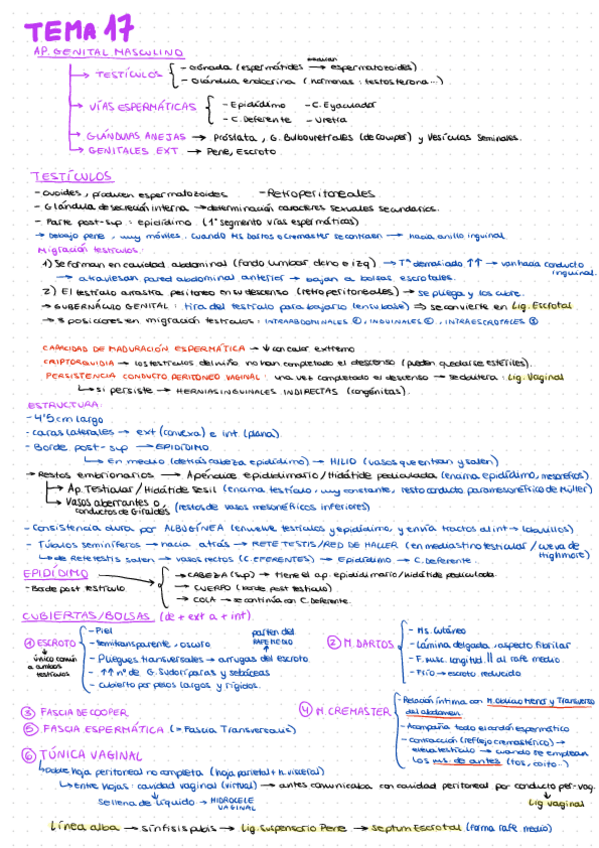 TEMA 17
AP. GENITAL MASCULINO
→ TESTÍCULOS - Gónada (espermátides → espermatozoides)
maduran
- Glándula endocrina (hormonas: testosterona...)
→ VÍAS ESPERMÁTICAS - Epidídimo - C. Eyaculador
- C. Deferente - Uretra
→ GLÁNDULAS ANEJAS → Próstata, G. Bulbouretrales (de Cowper) y Vesículas Seminales.
→ GENITALES EXT → Pene, Escroto
TESTÍCULOS
- ovoides, producen espermatozoides - Retroperitoneales
- Glándula de secreción interna → determinación caracteres sexuales secundarios.
- Parte post-sup: epidídimo (1º segmento vías espermáticas)
→ Debajo pene, muy móviles. Cuando Ms Dartos o Cremaster se contraen → hacia anillo inguinal
Migración testículos:
1) Se forman en cavidad abdominal (fondo lumbar dcho e izq) → Tª demasiado ↑↑ → van hacia conducto inguinal.
→ atraviesan pared abdominal anterior → bajan a bolsas escrotales.
2) El testículo arrastra peritoneo en su descenso (retroperitoneales) → se pliega y los cubre.
→ GUBERNÁCULO GENITAL: tira del testículo para bajarlo (en su base) ⇒ se convierte en Lig. Escrotal
→ 3 posiciones en migración testículos: INTRAABDOMINALES ①, INGUINALES ②, INTRAESCROTALES ③
CAPACIDAD DE MADURACIÓN ESPERMÁTICA → ↓ con calor extremo
CRIPTORQUIDIA → los testículos del niño no han completado el descenso (pueden quedarse estériles).
PERSISTENCIA CONDUCTO PERITONEO VAGINAL: una vez completado el descenso → se oblitera: Lig. Vaginal
↳ si persiste → HERNIAS INGUINALES INDIRECTAS (congénitas).
ESTRUCTURA:
- 4'5 cm largo
- Caras laterales → ext (convexa) e int (plana).
- Borde post-sup → EPIDÍDIMO.
↳ en medio (detrás cabeza epidídimo) → HILIO (vasos que entran y salen)
→ Restos embrionarios → Apéndice epididimario/Hidátide pediculada (encima epidídimo, mesonéfrico)
→ Ap. Testicular/Hidátide Sesil (encima testículo, muy constante, resto conducto paramesonéfrico de Müller)
→ Vasos aberrantes o conductos de Giraldés (restos de vasos mesonéfricos inferiores)
- Consistencia dura por ALBUGÍNEA (envuelve testículos y epidídimo, y envía tractos al int → lobulillos)
- Túbulos seminíferos → hacia atrás → RETE TESTIS/RED DE HALLER (en mediastino testicular / cueva de Highmore)
↳ de rete testis salen → vasos rectos (C. EFERENTES) → Epidídimo → C. Deferente.
EPIDÍDIMO
- Borde post testículo
→ CABEZA (sup) → tiene el ap. epididimario/hidátide pediculada.
→ CUERPO (borde post testículo)
→ COLA → se continúa con C. Deferente.
CUBIERTAS/BOLSAS (de + ext a + int)
① ESCROTO
↓
único común a ambos testículos
- Piel
- Semitransparente, oscuro
- Pliegues transversales → arrugas del escroto
parten del RAFE MEDIO
- ↑↑ nº de G. Sudoríparas y sebáceas
- cubierto por pelos largos y rígidos.
② M. DARTOS
- Ms. Cutáneo
- Lámina delgada, aspecto fibrilar
- F. musc. longitud. || al rafe medio
- Frío → escroto reducido
③ FASCIA DE COOPER
④ M. CREMASTER
- Relación íntima con M. Oblicuo Menor y Transverso del abdomen
- Acompaña todo el cordón espermático
- Contracción (reflejo cremastérico) → eleva testículo → cuando se emplean los ms. de antes (tos, coito..)
⑤ FASCIA ESPERMÁTICA (> Fascia Transversalis)
⑥ TÚNICA VAGINAL
↳ doble hoja peritoneal no completa (hoja parietal + h. visceral)
↳ entre hojas: cavidad vaginal (virtual) → antes comunicaba con cavidad peritoneal por conducto per-vag.
se llena de líquido → HIDROCELE VAGINAL
↓
Lig vaginal
Línea alba → sínfisis pubis → Lig. Suspensorio Pene → Septum Escrotal (forma rafe medio)